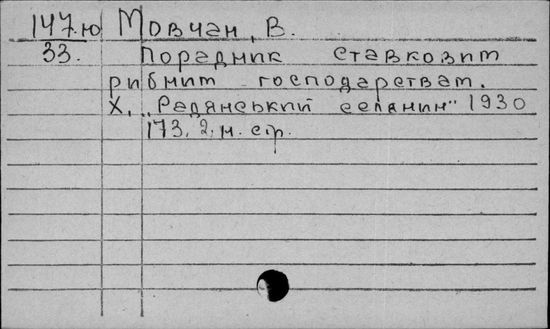 147.ю Мовчан, В.
33. Порадник ставковит
рибнит господарствам.
Х. „Радянський селянин" 1930
173, 2. н. стр.